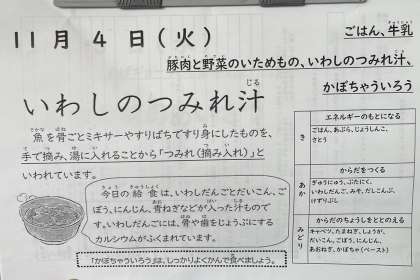 11月4日(火)
ごはん、牛乳
豚肉と野菜のいためもの、いわしのつみれ汁、
かぼちゃういろう
いわしのつみれ汁
魚を骨ごとミキサーやすりばちですり身にしたものを、
手で摘み、湯に入れることから「つみれ(摘み入れ)」と
いわれています。
今日の給食は、いわしだんごとだいこん、ご
ぼう、にんじん、青ねぎなどが入った汁もので
す。いわしだんごには、骨や歯をじょうぶにする
カルシウムがふくまれています。
「かぼちゃういろう」は、しっかりよくかんで食べましょう。
き
エネルギーのもとになる
ごはん、あぶら、じょうしんこ、
さとう
あか
からだをつくる
ぎゅうにゅう、ぶたにく、
いわしだんご、みそ、だしこんぶ、
けずりぶし
みどり
からだのちょうしをととのえる
キャベツ、たまねぎ、しょうが、
だいこん、ごぼう、にんじん、
あおねぎ、かぼちゃ(ペースト)